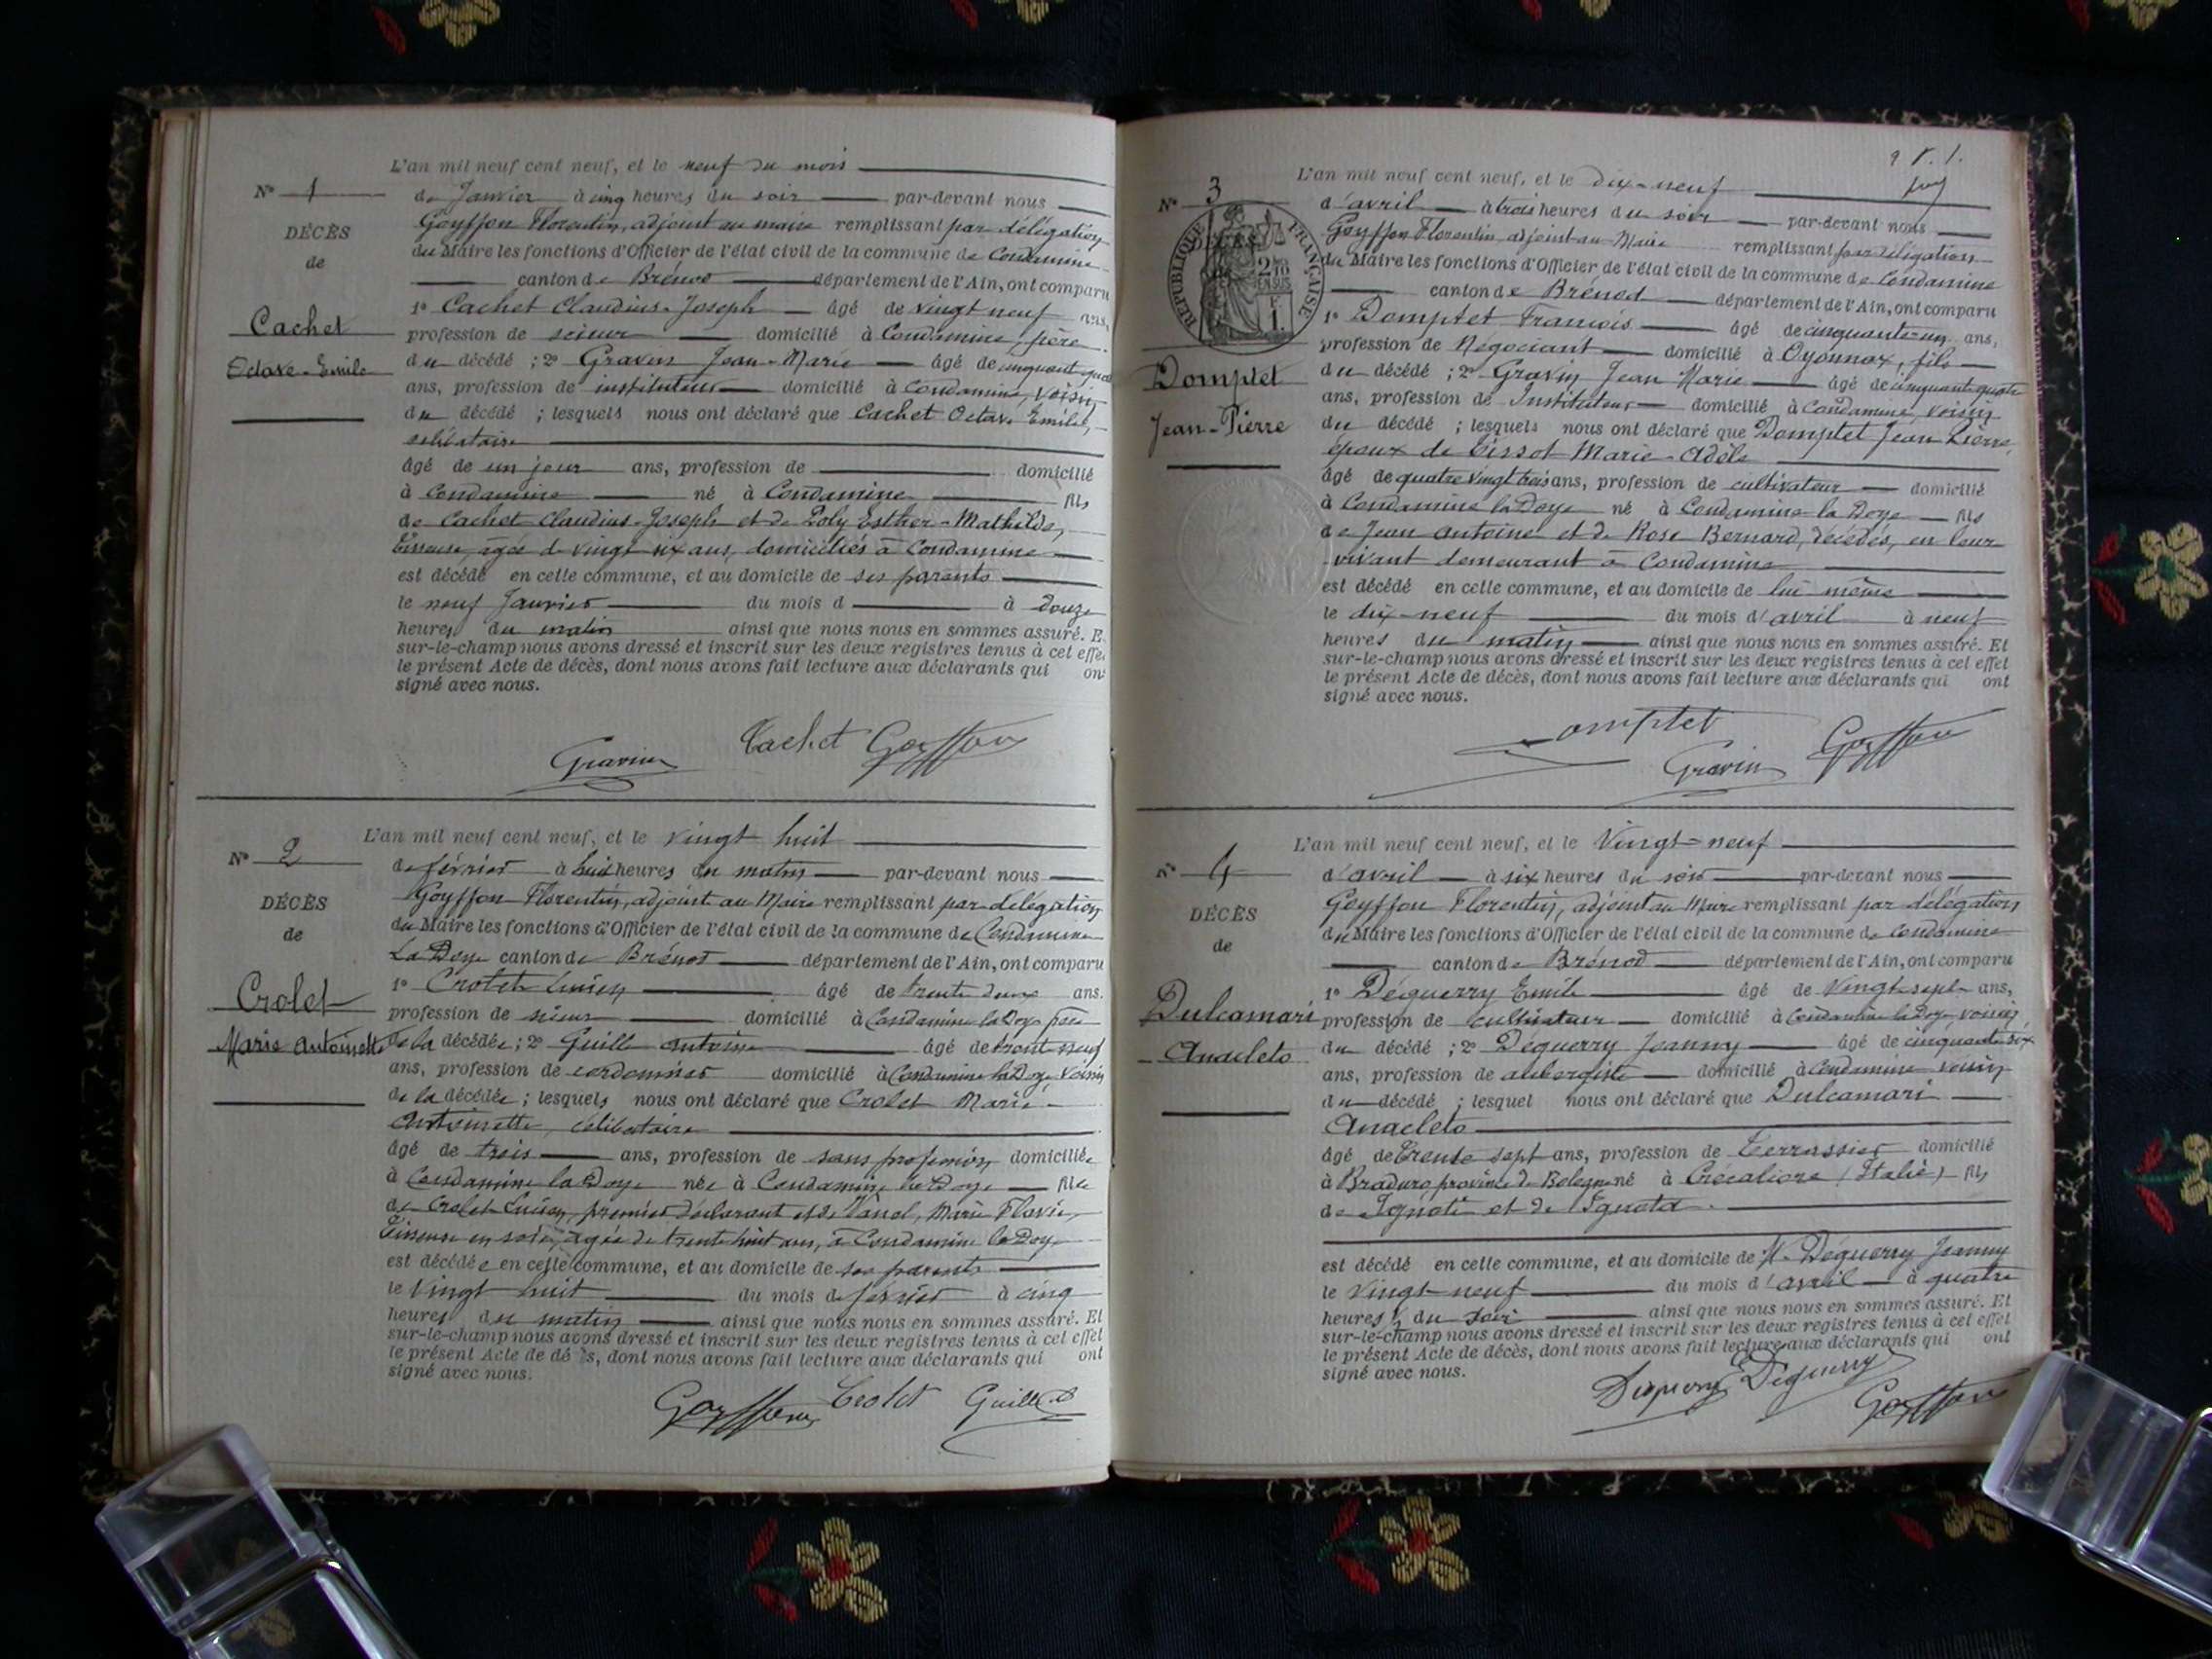 L'an mil neuf cent neuf, et le neuf du mois
N° 1
de Janvier à cinq heures du soir par-devant nous
DÉCÈS
de
Cachet
Octave-Emile
Goyffon Florentin, adjoint au maire remplissant par délégation
du Maire les fonctions d'Officier de l'état civil de la commune de Condamine
canton de Brénod département de l'Ain, ont comparu
1° Cachet Claudius-Joseph âgé de vingt neuf ans,
profession de scieur domicilié à Condamine, père
du décédé ; 2° Gravin Jean-Marie âgé de cinquant quatre
ans, profession de instituteur domicilié à Condamine, voisin
du décédé ; lesquels nous ont déclaré que Cachet Octave Emile,
célibataire
âgé de un jour ans, profession de domicilié
à Condamine né à Condamine fils
de Cachet Claudius-Joseph et de Poly Esther-Mathilde,
tisseuse, âgée de vingt six ans, domiciliés à Condamine
est décédé en cette commune, et au domicile de ses parents
le neuf Janvier du mois d à douze
heures du matin ainsi que nous nous en sommes assuré. E
sur-le-champ nous avons dressé et inscrit sur les deux registres tenus à cet effe
le présent Acte de décès, dont nous avons fait lecture aux déclarants qui on
signé avec nous.
Gravin Cachet Goyffon
L'an mil neuf cent neuf, et le vingt huit
N° 2
de février à huit heures du matin par-devant nous
DÉCÈS
de
Crolet
Marie Antoinette
Goyffon Florentin, adjoint au Maire remplissant par délégation
du Maire les fonctions d'Officier de l'état civil de la commune de Condamine
La Doye canton de Brénod département de l'Ain, ont comparu
1° Crolet Lucien âgé de trente deux ans.
profession de scieur domicilié à Condamine la Doye père
de la décédée ; 2° Guille Antoine âgé de trent neuf
ans, profession de cordonnier domicilié à Condamine la Doye, voisin
de la décédée ; lesquels nous ont déclaré que Crolet Marie-
Antoinette, célibataire
âgé de trois ans, profession de sans profession domiciliée
à Condamine la Doye née à Condamine la Doye fille
de Crolet Lucien, premier déclarant et de Marie Flavie,
Tisseuse en soie, âgée de trente huit ans, à Condamine la Doye
est décédée en cette commune, et au domicile de ses parents
le Vingt huit du mois de février à cinq
heures du matin ainsi que nous nous en sommes assuré. Et
sur-le-champ nous avons dressé et inscrit sur les deux registres tenus à cet effet
le présent Acte de décès, dont nous avons fait lecture aux déclarants qui ont
signé avec nous.
Goyffon Crolet Guille
L'an mil neuf cent neuf, et le dix-neuf
N° 3
RÉPUBLIQUE FRANÇAISE
2/10 EN SUS
d'avril à trois heures du soir par-devant nous
DÉCÈS
Domptet
Jean-Pierre
Goyffon Florentin, adjoint au Maire remplissant par délégation
du Maire les fonctions d'Officier de l'état civil de la commune de Condamine
canton de Brénod département de l'Ain, ont comparu
1° Domptet François âgé de cinquante-un ans,
profession de Négociant domicilié à Oyonnax, fils
du décédé ; 2° Gravin Jean Marie âgé de cinquant quatre
ans, profession de Instituteur domicilié à Condamine, voisin
du décédé ; lesquels nous ont déclaré que Domptet Jean Pierre,
époux de Tissot Marie-Adèle
âgé de quatre vingt trois ans, profession de cultivateur domicilié
à Condamine la Doye né à Condamine la Doye fils
de Jean Antoine et de Rose Bernard, décédés, en leur
vivant demeurant à Condamine
est décédé en cette commune, et au domicile de lui même
le dix-neuf du mois d'avril à neuf
heures du matin ainsi que nous nous en sommes assuré. Et
sur-le-champ nous avons dressé et inscrit sur les deux registres tenus à cet effet
le présent Acte de décès, dont nous avons fait lecture aux déclarants qui ont
signé avec nous.
Domptet Gravin Goyffon
L'an mil neuf cent neuf, et le Vingt-neuf
N° 4
d'avril à six heures du soir par-devant nous
DÉCÈS
de
Dulcamari
Anacleto
Goyffon Florentin, adjoint au Maire remplissant par délégation
du Maire les fonctions d'Officier de l'état civil de la commune de Condamine
canton de Brénod département de l'Ain, ont comparu
1° Déguerry Emile âgé de Vingt-sept ans,
profession de cultivateur domicilié à Condamine la Doye voisin
du décédé ; 2° Déguerry Jeanny âgé de cinquante six
ans, profession de aubergiste domicilié à Condamine voisin
du décédé ; lesquel nous ont déclaré que Dulcamari
Anacleto
âgé de Trente sept ans, profession de Terrassier domicilié
à Braduro province de Bologne né à Crécaliore (Italie) fils
de Ignoti et de Ignota
est décédé en cette commune, et au domicile de M. Déguerry Jeanny
le Vingt-neuf du mois d'avril à quatre
heures ½ du soir ainsi que nous nous en sommes assuré. Et
sur-le-champ nous avons dressé et inscrit sur les deux registres tenus à cet effet
le présent Acte de décès, dont nous avons fait lecture aux déclarants qui ont
signé avec nous.
Déguerry Déguerry Goyffon